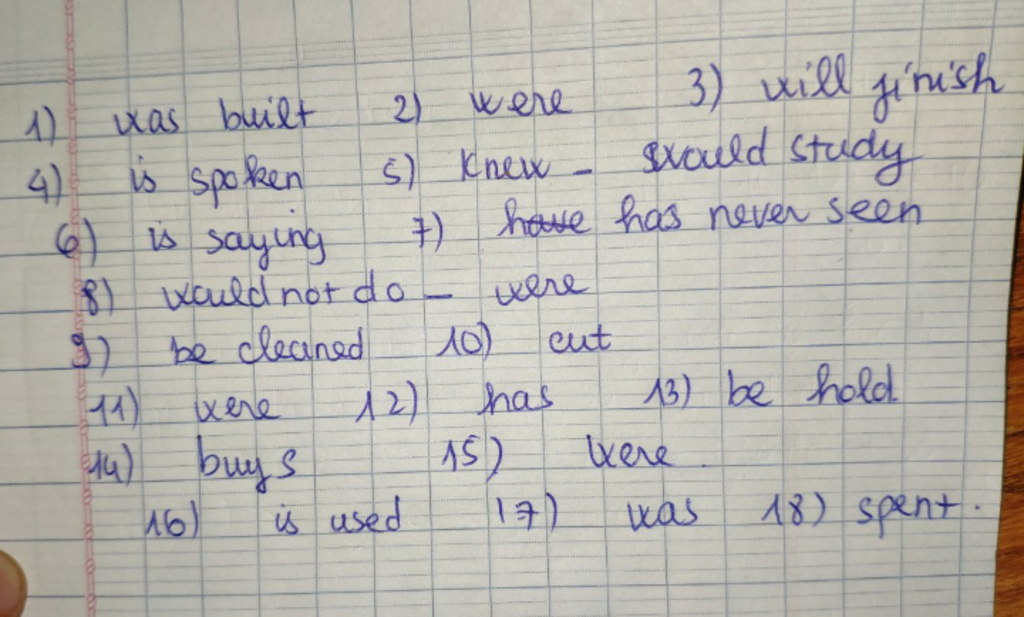 1) was built 2) were 3) will finish
4) is spoken 5) Knew - would study
6) is saying 7) have has never seen
8) would not do - were
9) be cleaned 10) cut
11) were 12) has 13) be hold
14) buys 15) were.
16) is used 17) was 18) spent.